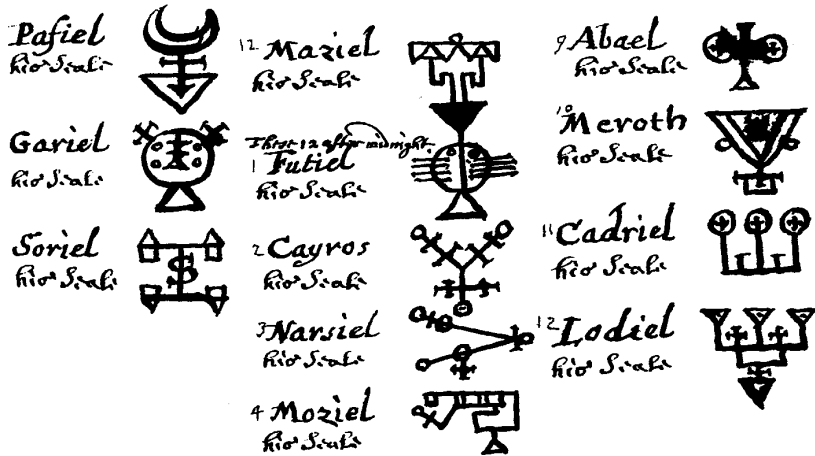 Pafiel
his Seale
Gariel
his Seale
Soriel
his Seale
12 Maziel
his Seale
These 12 after midnight.
1 Futiel
his Seale
2 Cayros
his Seale
3 Narsiel
his Seale
4 Moziel
his Seale
9 Abael
his Seale
10 Meroth
his Seale
11 Cadriel
his Seale
12 Lodiel
his Seale